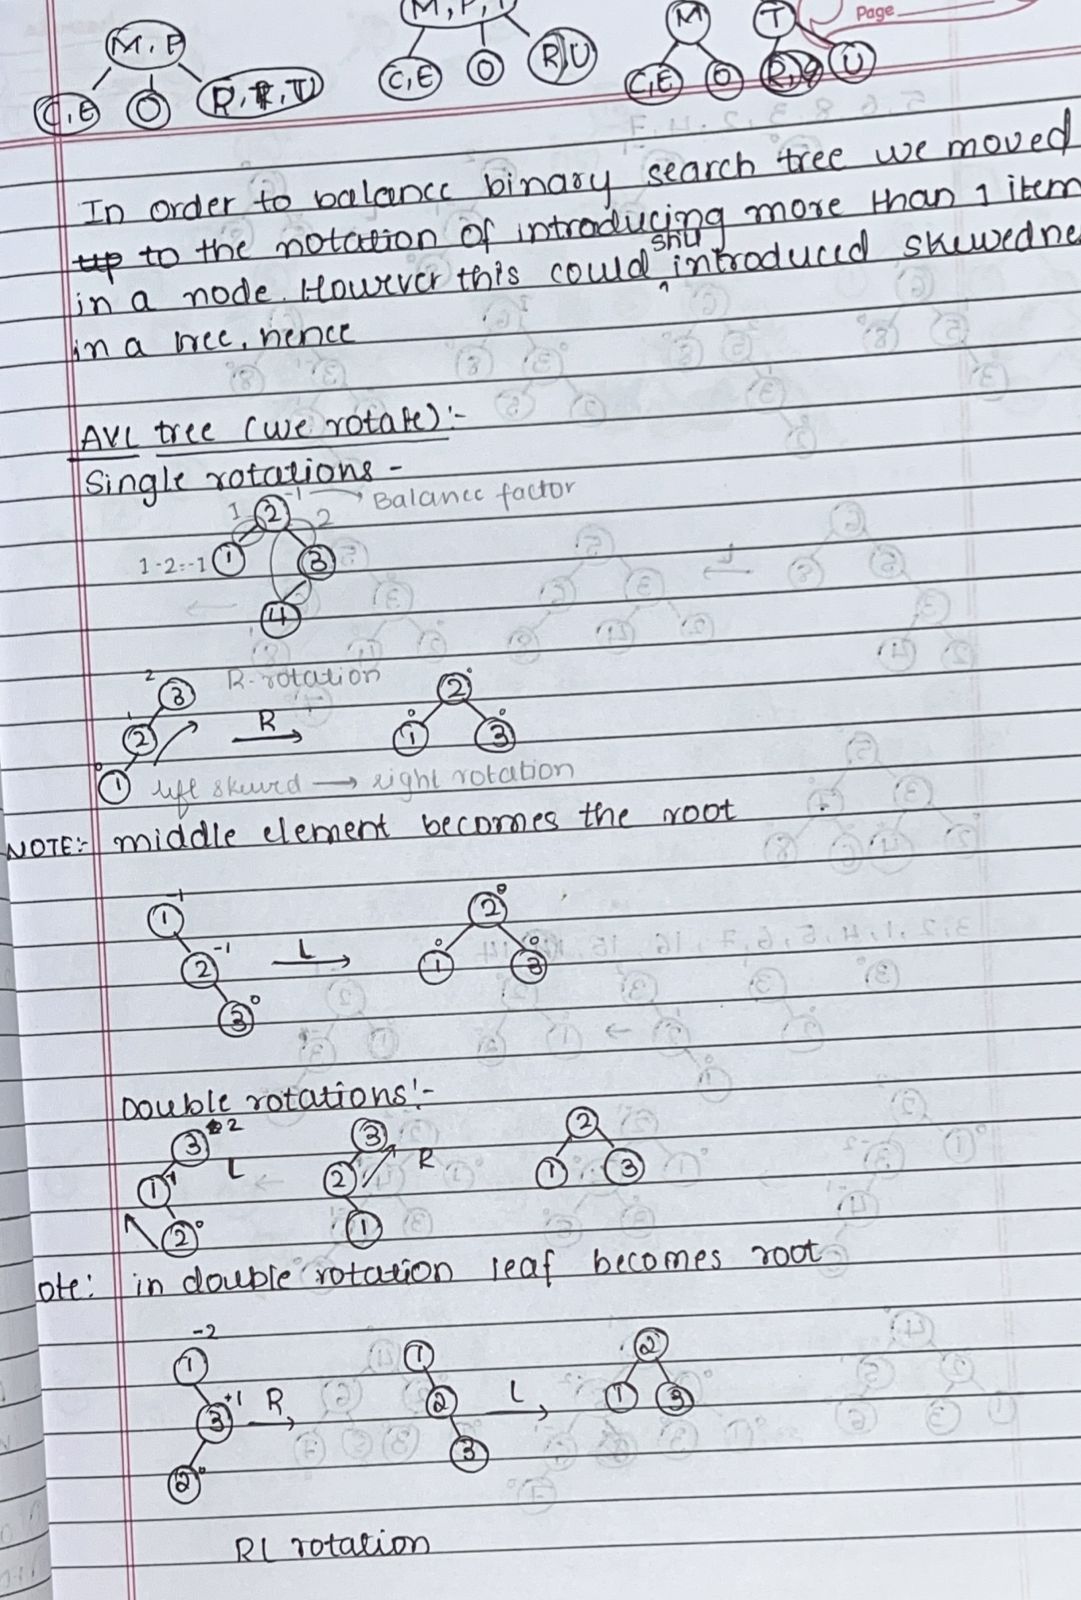 Page
M, P
C, E
O
R, U
M
T
C,E
O
U
M, P
C, E
O
In order to balance binary search tree we moved
to the notation of introducing more than 1 item
still
in a node. However this could ^ introduced skewedne
in a tree, hence
AVL tree (we rotate):-
Single rotations -
-1 → Balance factor
1 2 2
1-2=-1 1 3
4
2 3 R-rotation 2 0
1 2 R 0 1 0 3
0 1 left skewed → right rotation
NOTE:- middle element becomes the root
1 -1 2 0
2 -1 L 0 1 0 3
3 0
Double rotations:-
3 2 L 3 R 2
1 2 1 3
2 0 1
ote: in double rotation leaf becomes root
-2
1 1 2
3 +1 R 2 L 1 3
2 0 3
RL rotation